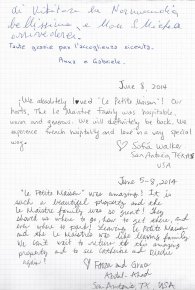 di visitare la Normandia
bellissima e Mont S. Michel
arrivederci.
Tante grazie per l'accoglienza ricevuta.
Anna e Gabriele.
June 8, 2014
We absolutely loved "Le Petite Maison"! Our
hosts, The Le Maistre Family was hospitable,
warm and gorgeous. We will definitely be back. We
experience french hospitality and love in a very special
way.
♡ Sofia Walker
San Antonio, TEXAS
USA
June 5-8, 2014
"Le Petite Maison" was amazing! It is
such a beautiful property and the
Le Maistre family was so great! They
shared us where to go, how to get there, and
only place to park! Leaving Le Petite Maison
and the Le Maistres was like leaving family.
We can't wait to return to this amazing
property and to see Catherine and
again!
♡ and Gina
San Antonio TX USA